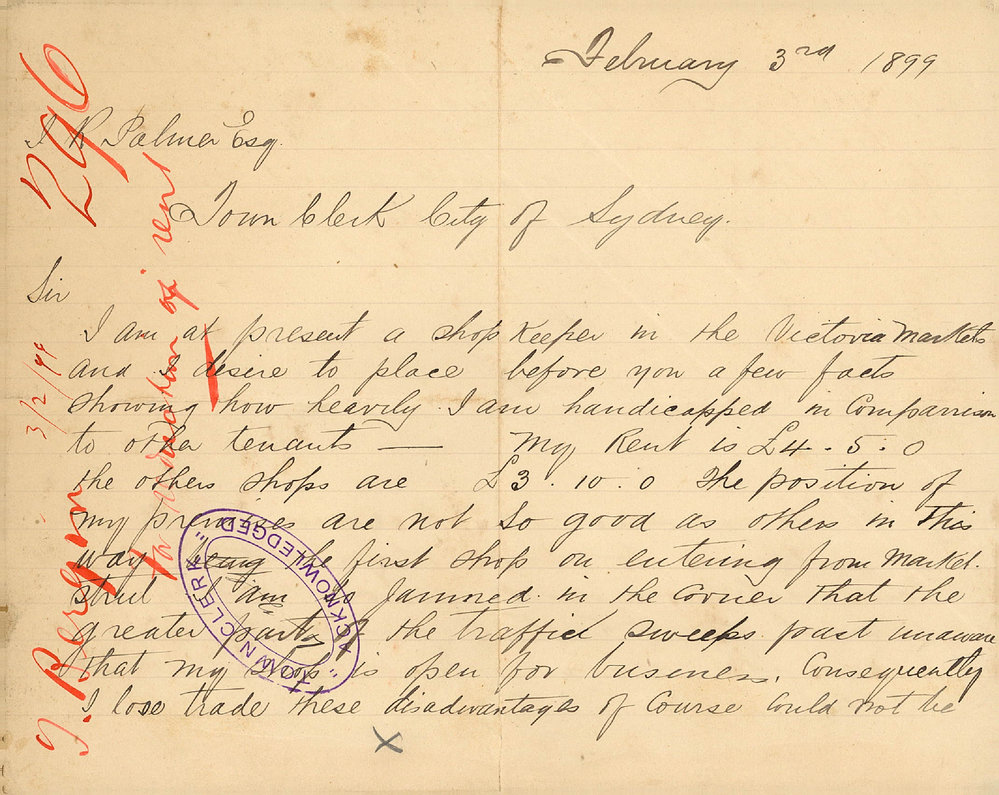 February 3rd 1899
J R Palmer Esq.
Town Clerk City of Sydney.
Sir
I am at present a shop keeper in the Victoria Markets
and I desire to place before you a few facts
showing how heavily I am handicapped in Comparrison
to other tenants — my Rent is £4.5.0
the others shops are £3.10.0 The position of
my premises are not so good as others in this
way being the first shop on entering from Market.
Street I am so Jammed in the Corner that the
greater part of the traffic sweeps past unaware
that my shop is open for business. Consequently
I lose trade these disadvantages of Course could not be
X
296
3/2/99
for reduction of rent
"TOWN CLERK" ACKNOWLEDGED